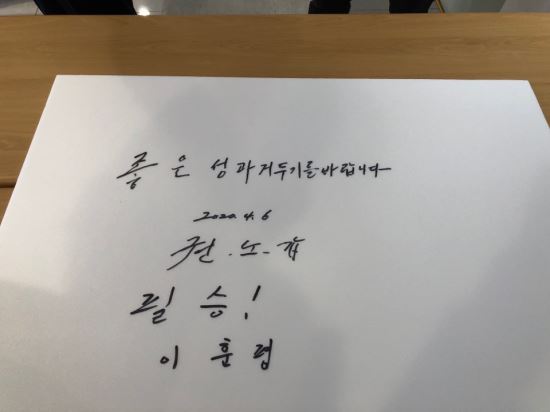 좋은 성과 거두기를 바랍니다
2020. 4. 6
권.노.갑
필승!
이훈평